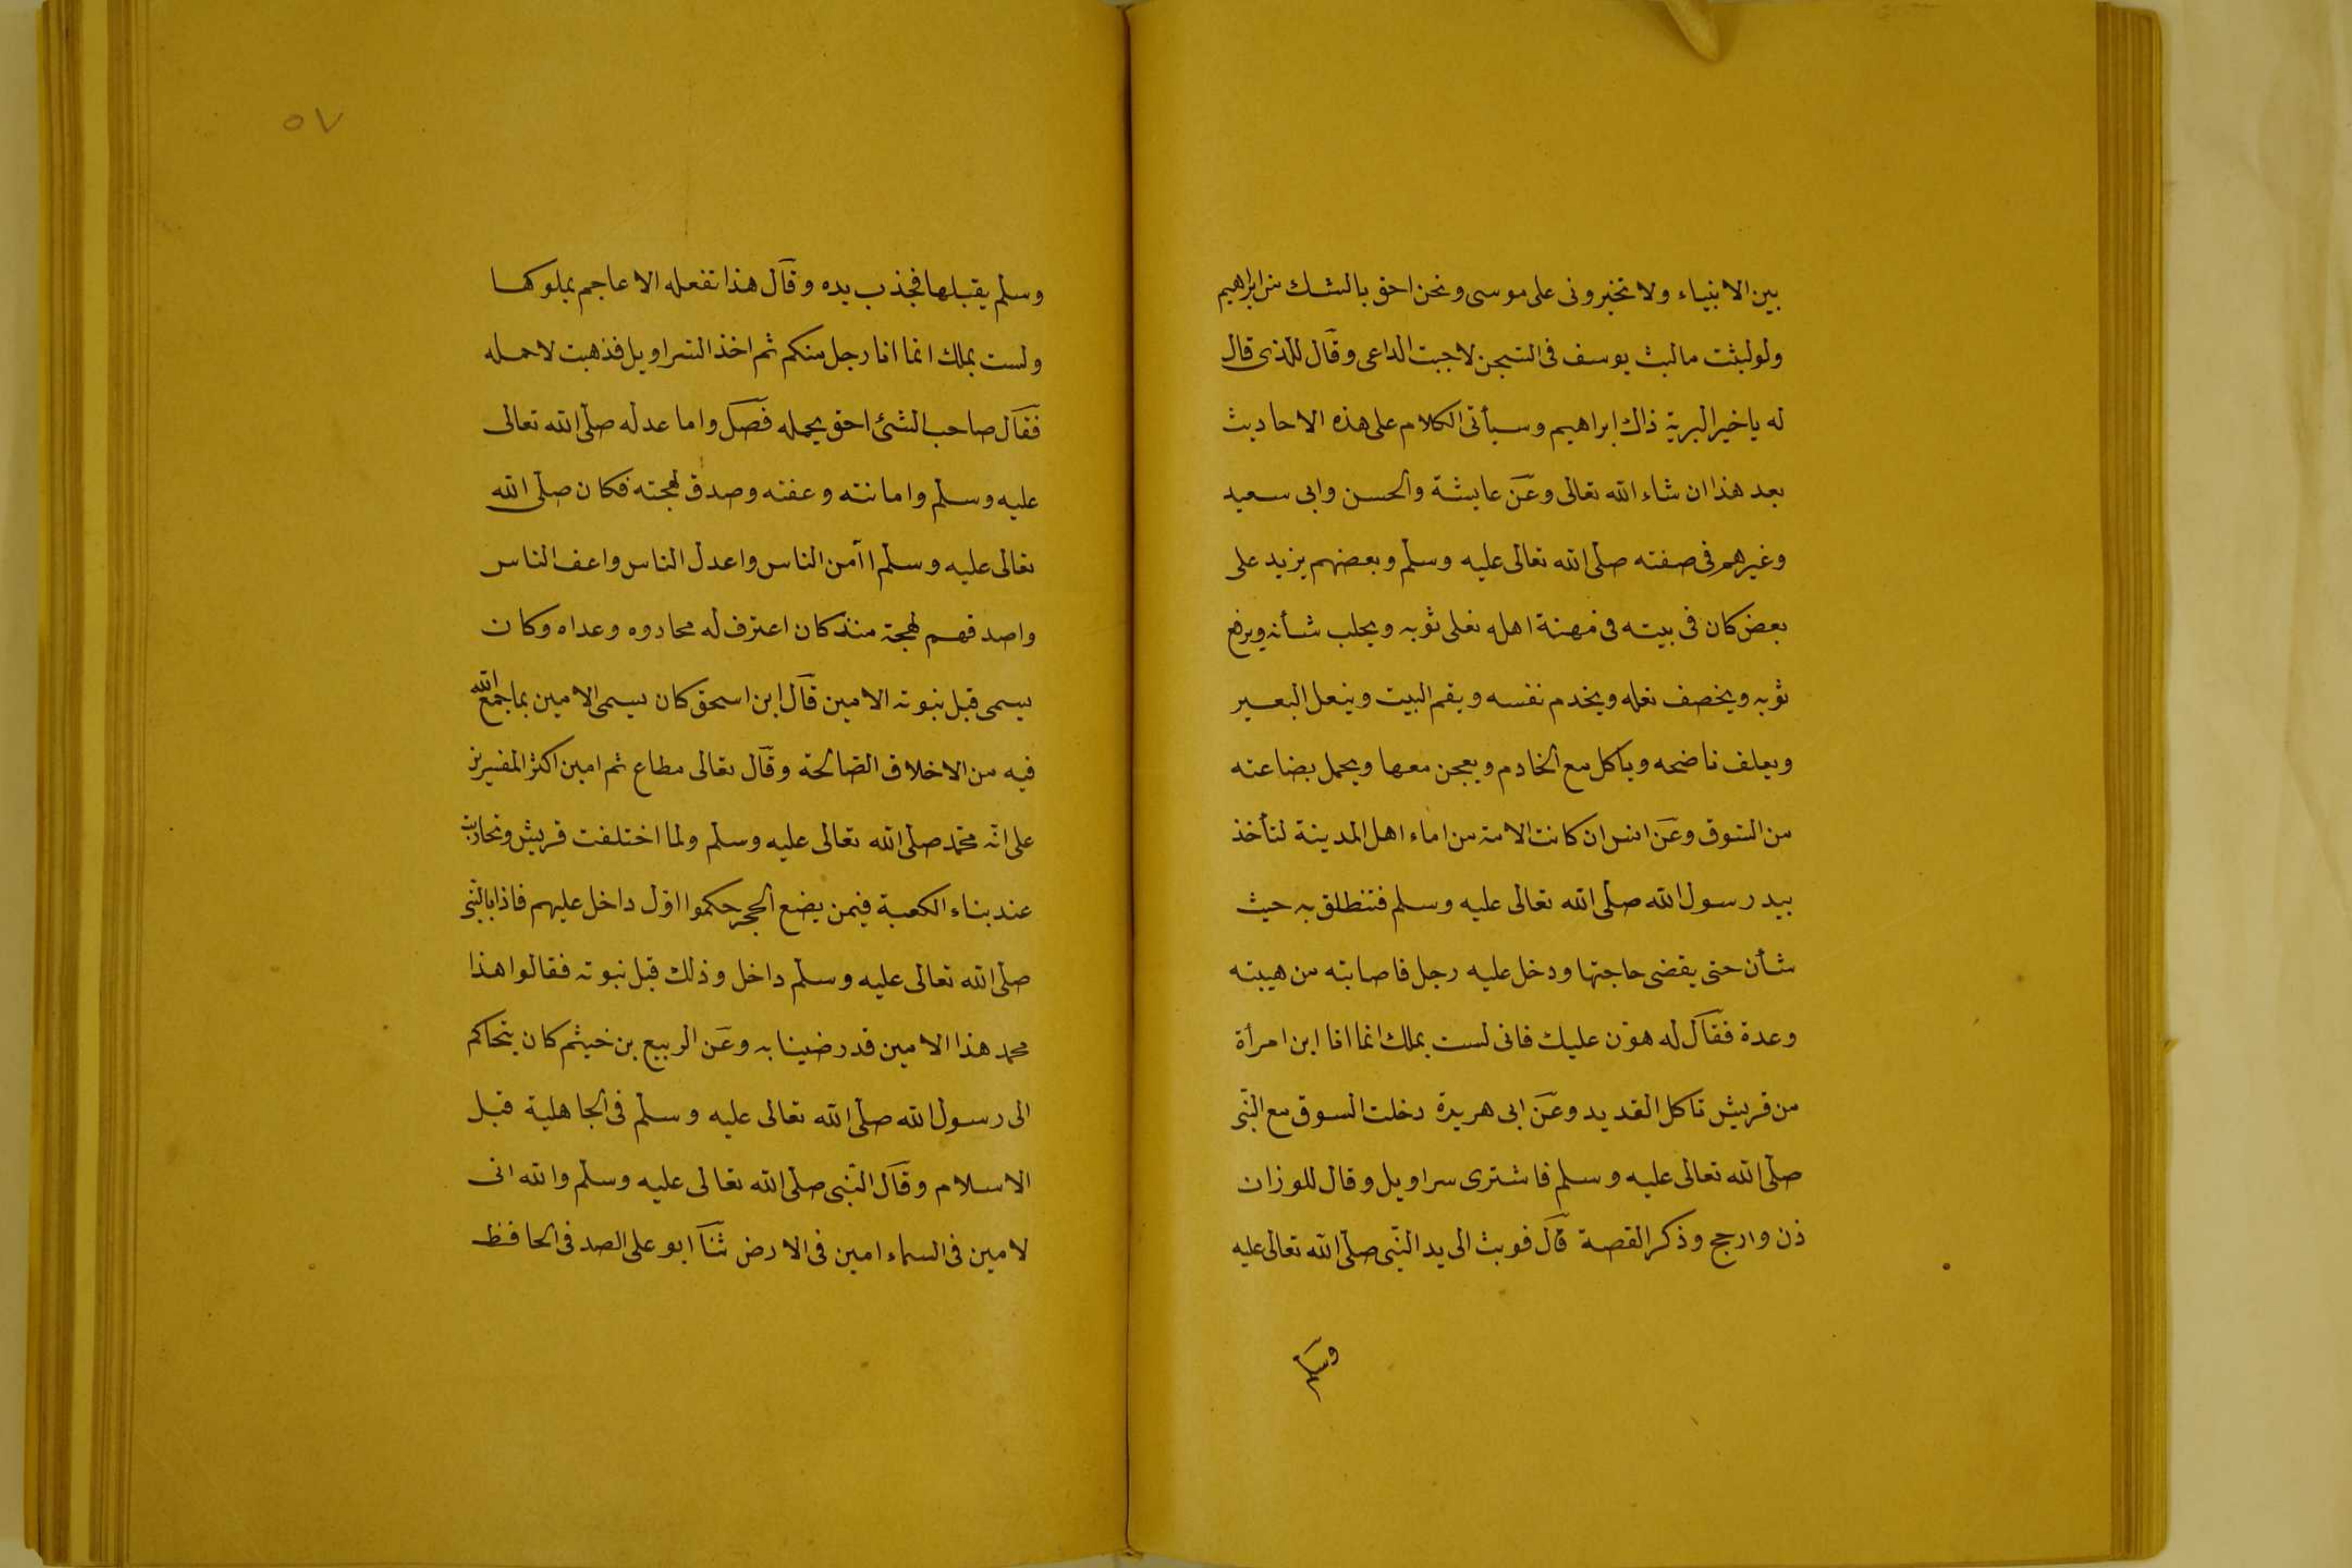 بين الانبياء ولا تخيرونى على موسى ونحن احق بالشك من ابراهيم
ولو لبثت ما لبث يوسف فى السجن لاجبت الداعى وقال للذى قال
له يا خير البرية ذاك ابراهيم وسيأتى الكلام على هذه الاحاديث
بعد هذا ان شاء الله تعالى وعن عايشة والحسن وابى سعيد
وغيرهم فى صفته صلى الله تعالى عليه وسلم وبعضهم يزيد على
بعض كان فى بيته فى مهنة اهله نغلى ثوبه ويحلب شأنه ويرفع
ثوبه ويخصف نعله ويخدم نفسه ويقم البيت وينعل البعير
ويعلف ناضحه ويأكل مع الخادم ويعجن معها ويحمل بضاعته
من السوق وعن انس ان كانت الامة من اماء اهل المدينة لتأخذ
بيد رسول الله صلى الله تعالى عليه وسلم فتنطلق به حيث
شأن حتى يقضى حاجتها ودخل عليه رجل فاصابته من هيبته
وعدة فقال له هون عليك فانى لست بملك انما انا ابن امرأة
من قريش تاكل القديد وعن ابى هريرة دخلت السوق مع النبى
صلى الله تعالى عليه وسلم فاشترى سراويل وقال للوزان
ذن وارجح وذكر القصة قال فوبث الى يد النبى صلى الله تعالى عليه
وسلم
٥٧
وسلم يقبلها فجذب يده وقال هذا تفعله الاعاجم بملوكها
ولست بملك انما انا رجل منكم ثم اخذ السراويل فذهبت لاحمله
فقال صاحب الشئ احق يحمله فصل واما عدله صلى الله تعالى
عليه وسلم وامانته وعفته وصدق لهجته فكان صلى الله
تعالى عليه وسلم اآمن الناس واعدل الناس واعف الناس
واصدقهم لهجة منذ كان اعترف له محادوه وعداه وكان
يسمى قبل نبوته الامين قال ابن اسحق كان يسمى الامين بما جمع الله
فيه من الاخلاق الصالحة وقال تعالى مطاع ثم امين اكثر المفسرين
على انه محمد صلى الله تعالى عليه وسلم ولما اختلفت قريش وتحاربت
عند بناء الكعبة فيمن يضع الحجر حكموا اول داخل عليهم فاذا بالنبى
صلى الله تعالى عليه وسلم داخل وذلك قبل نبوته فقالوا هذا
محمد هذا الامين قد رضينا به وعن الربيع بن خيثم كان يتحاكم
الى رسول الله صلى الله تعالى عليه وسلم فى الجاهلية قبل
الاسلام وقال النبى صلى الله تعالى عليه وسلم والله انى
لامين فى السماء امين فى الارض ثنا ابو على الصدفى الحافظ